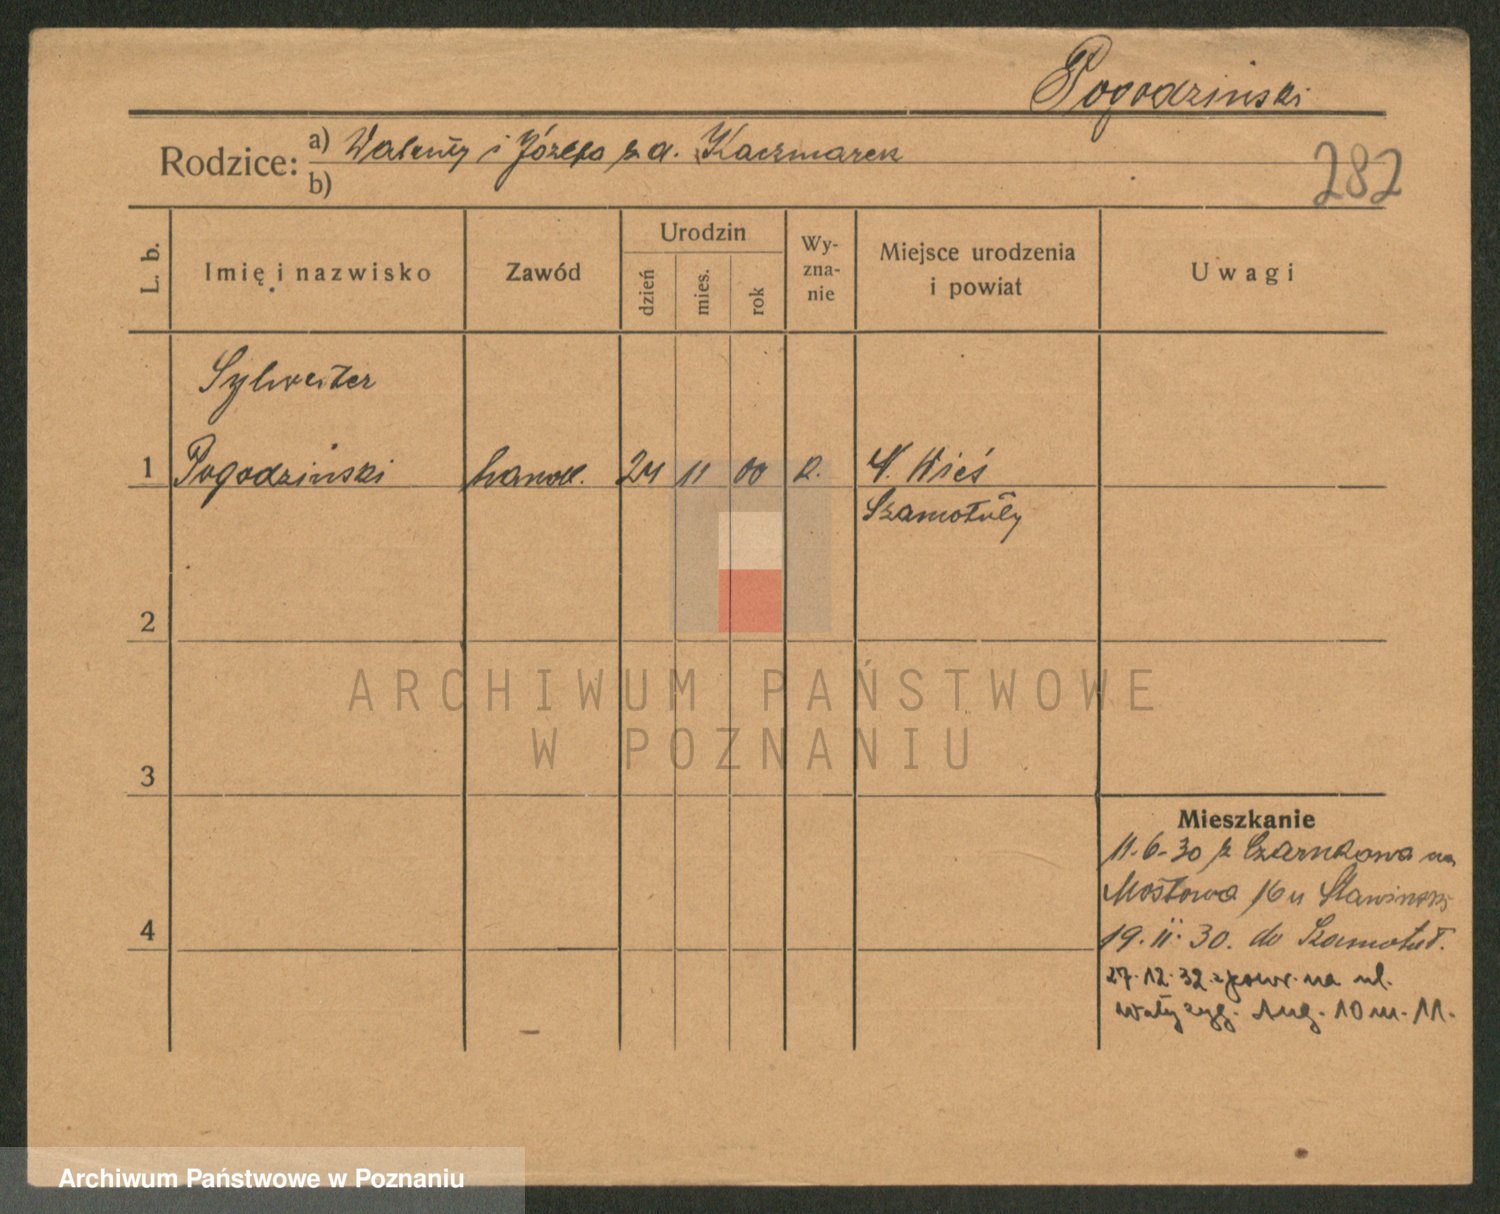 Pogodziński
Rodzice: a) Walenty i Józefa z d. Kaczmarek
b)
282
L. b.
Imię i nazwisko
Zawód
Urodzin
dzień
mies.
rok
Wy-
zna-
nie
Miejsce urodzenia
i powiat
Uwagi
Sylwester
1 Pogodziński handl. 24 11 00 R. N. Wieś
Szamotuły
2
ARCHIWUM PAŃSTWOWE
W POZNANIU
3
Mieszkanie
11-6-30 z Czarnkowa na
Mostowa 16 u Sławińskiej
4
19.11.30. do Szamotuł.
27.12.32 z powr. na ul.
Wały Zyg. Aug. 10 m. 11.
Archiwum Państwowe w Poznaniu